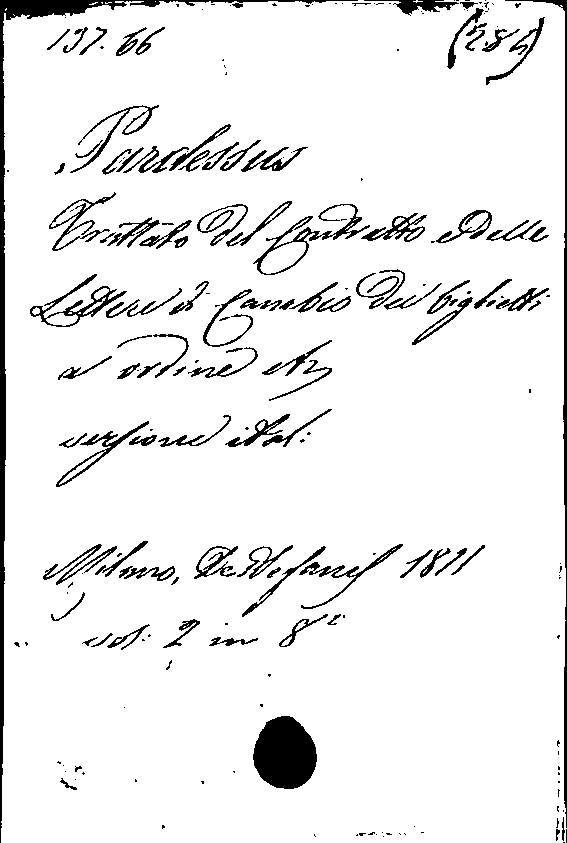 137.66 (284)
Pardessus
Trattato del Contratto e delle
Lettere di Cambio dei biglietti
a ordine etc
versione ital:
Milano, De Stefanis 1811
vol: 2 in 8°